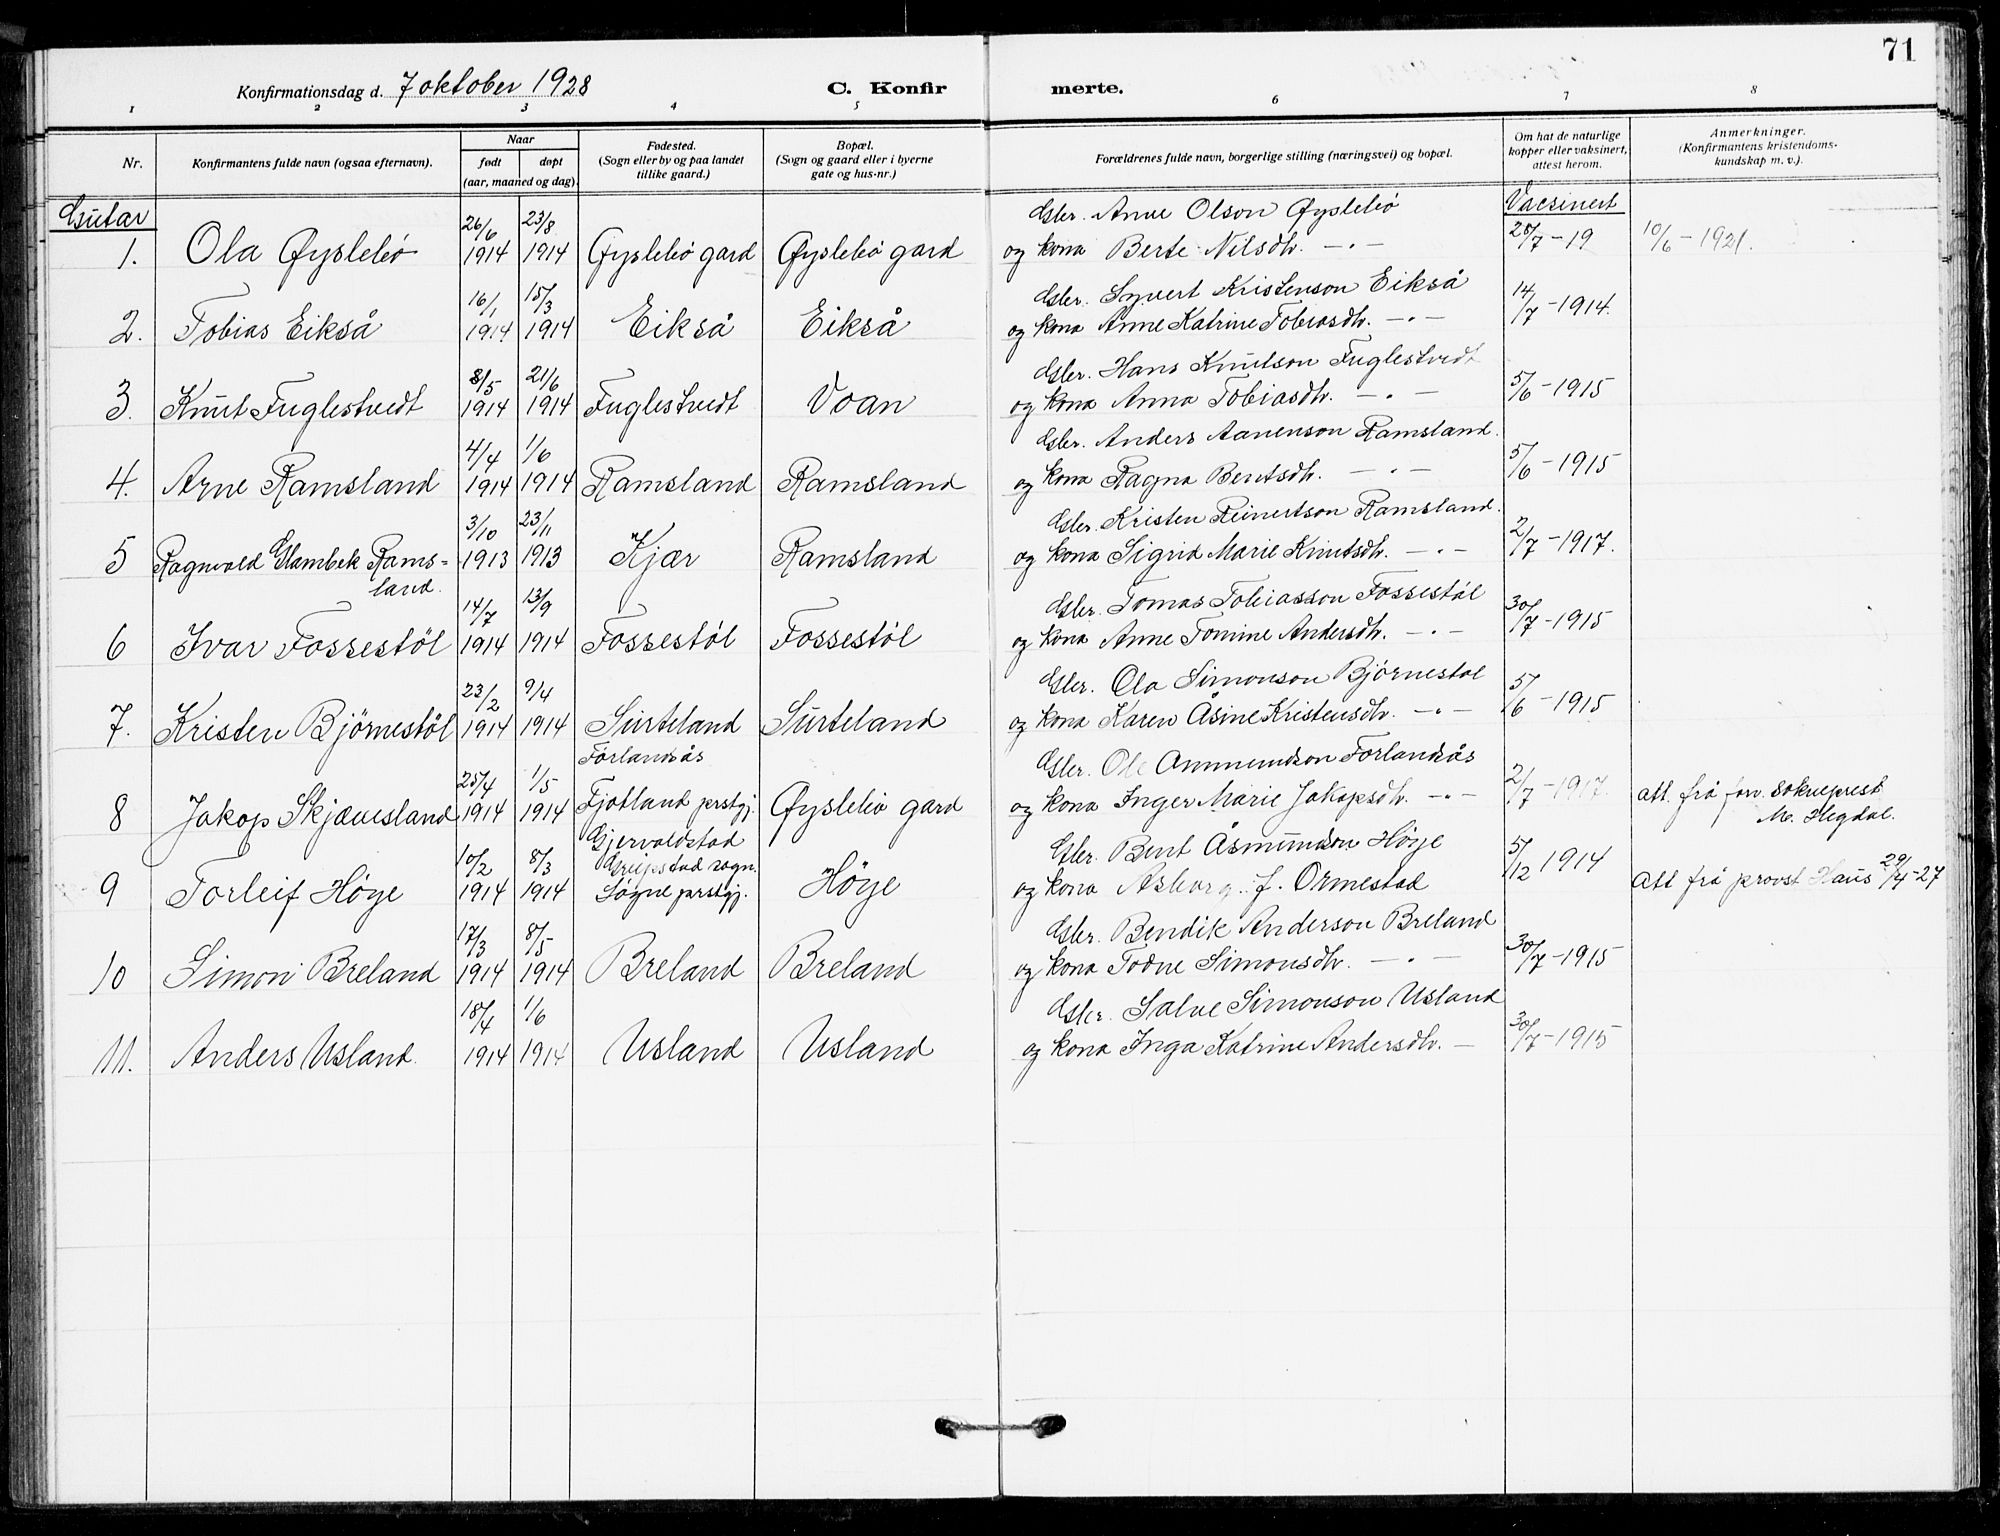 71
Konfirmationsdag d. 7 oktober 1928 C. Konfirmerte.
1 2 3 4 5 6 7 8
Nr. Konfirmantens fulde navn (ogsaa efternavn). Naar født døpt (aar, maaned og dag). Fødested. (Sogn eller by og paa landet tillike gaard.) Bopæl. (Sogn og gaard eller i byerne gate og hus-nr.) Forældrenes fulde navn, borgerlige stilling (næringsvei) og bopæl. Om hat de naturlige kopper eller vaksinert, attest herom. Anmerkninger. (Konfirmantens kristendomskundskap m. v.).
Gutar Vacsinert
26/6 23/8 Gbr. Olson Øyslebø
1. Ola Øyslebø 1914 1914 Øyslebø gard Øyslebø gard og kona Berte Nilsdtr. -"- 28/7-19 10/6-1921.
16/1 15/3 Gbr. Syvert Kristenson Eikså
2. Tobias Eikså 1914 1914 Eikså Eikså og kona Anne Katrine Tobiasdtr. -"- 14/7-1914.
8/5 21/6 Gbr. Hans Knutson Fuglestvedt
3. Knut Fuglestvedt 1914 1914 Fuglestvedt Voan og kona Anna Tobiasdtr. -"- 5/6-1915
4/4 1/6 Gbr. Anders Aanenson Ramsland.
4. Arne Ramsland 1914 1914 Ramsland Ramsland og kona Ragna Bentsdtr. -"- 5/6-1915
3/10 23/11 Gbr. Kristen Reinertson Ramsland.
5 Ragnvald Glambek Rams- 1913 1913 Kjær Ramsland og kona Sigrid Marie Knutsdtr. -"- 2/7-1917.
land.
14/7 13/9 Gbr. Tomas Tobiasson Fossestøl
6 Ivar Fossestøl 1914 1914 Fossestøl Fossestøl og kona Anne Tomine Andersdtr. -"- 30/7-1915
23/2 9/4 Gbr. Ola Simonson Bjørnestøl
7. Kristen Bjørnestøl 1914 1914 Surteland Surteland og kona Karen Åsine Kristensdtr. -"- 5/6-1915
Förlandsås
25/4 1/5 Gbr. Ole Ammundson Forlandsås
8 Jakop Skjævesland 1914 1914 Fjotland prstgj. Øyslebø gard og kona Inger Marie Jakopsdtr. -"- 2/7-1917. Att. frå forv. sokneprest
M. Hegdal.
Gjervoldstad
10/2 8/3 Greipstad sogn. Gbr. Bent Åsmundson Høye
9 Torleif Høye 1914 1914 Søgne prstgj. Høye og kona Asborg f. Ormestad 5/12 1914 Att frå provst Haus 29/4-27
17/3 8/5 Gbr. Bendik Anderson Breland
10 Simon Breland 1914 1914 Breland Breland og kona Todne Simonsdtr. -"- 30/7-1915
18/4 1/6 Gbr. Salve Simonson Usland
11. Anders Usland. 1914 1914 Usland Usland og kona Inga Katrine Andersdtr. - 30/7-1915